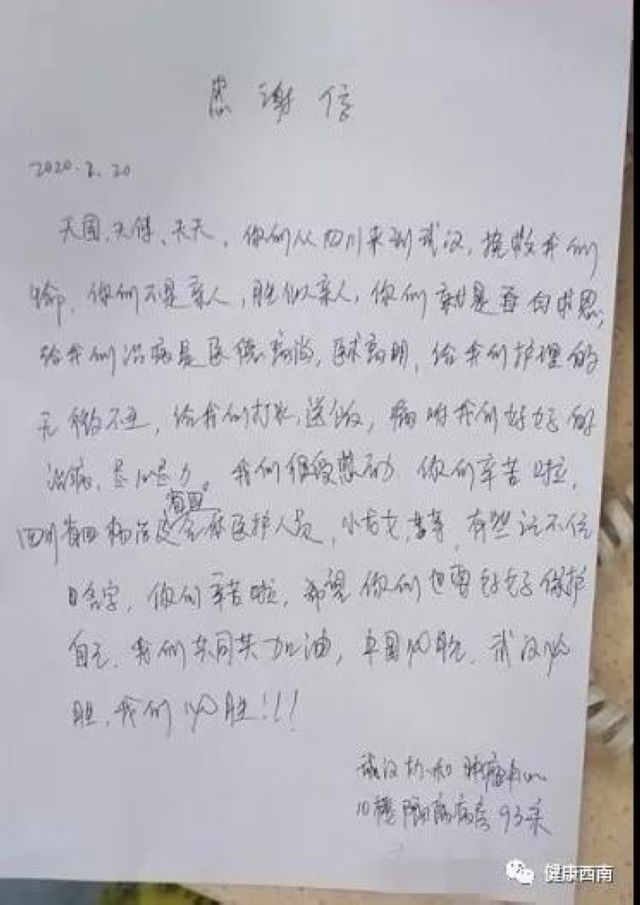 感谢信
2020.2.20
天国、天使、天天,你们从四川来到武汉,挽救我们
命,你们不是亲人,胜似亲人,你们就是白求恩,
给我们治病是医德高尚,医术高明,给我们护理的
无微不至,给我们打水,送饭,我们好好的
治病,尽心尽力。我们很受感动 你们辛苦啦,
省四
四川省四 医护人员,小 有些记不住
名字,你们辛苦啦,希望你们也要好好保护
自己,我们共同加油,中国必胜,武汉必
胜,我们必胜!!!
武汉协和肿瘤
10楼病房93床
健康西南